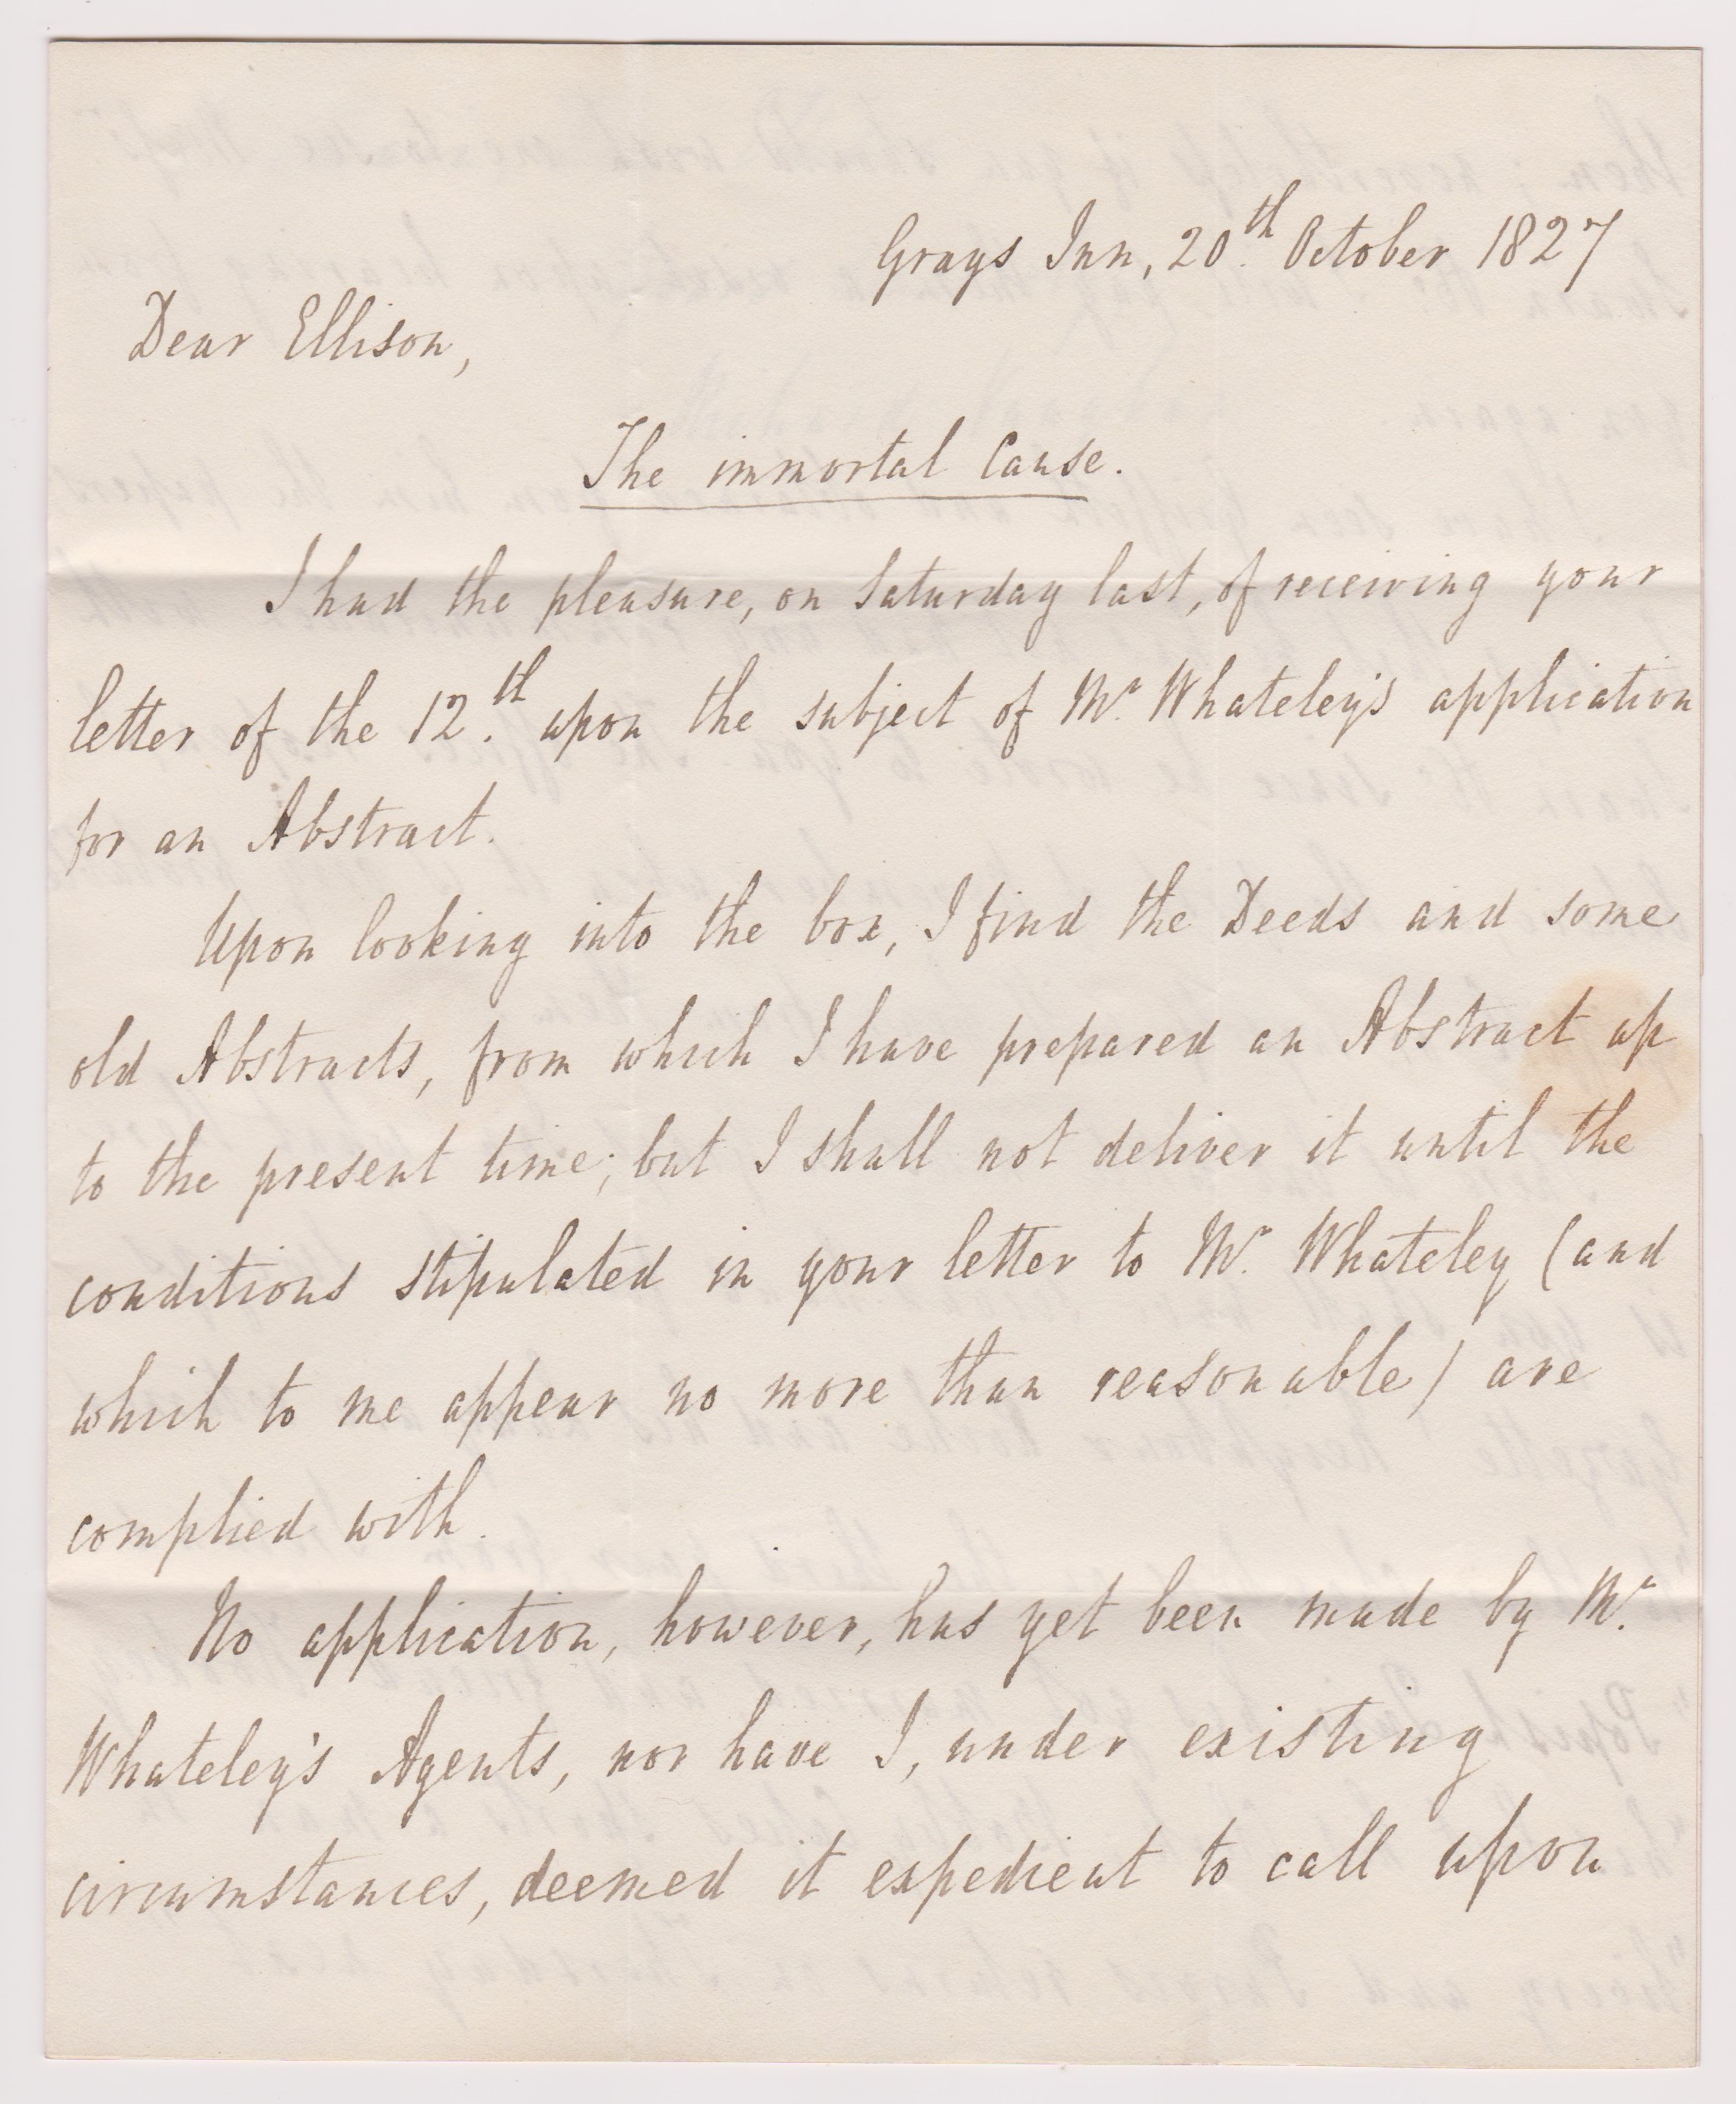 Grays Inn, 20th October 1827
Dear Ellison,
The immortal Cause.
I had the pleasure, on Saturday last, of receiving your
letter of the 12th upon the subject of Mr. Whateley's application
for an Abstract.
Upon looking into the box, I find the Deeds and some
old Abstracts, from which I have prepared an Abstract up
to the present time; but I shall not deliver it until the
conditions stipulated in your letter to Mr. Whateley (and
which to me appear no more than reasonable) are
complied with.
No application, however, has yet been made by Mr.
Whateley's Agents, nor have I, under existing
circumstances, deemed it expedient to call upon